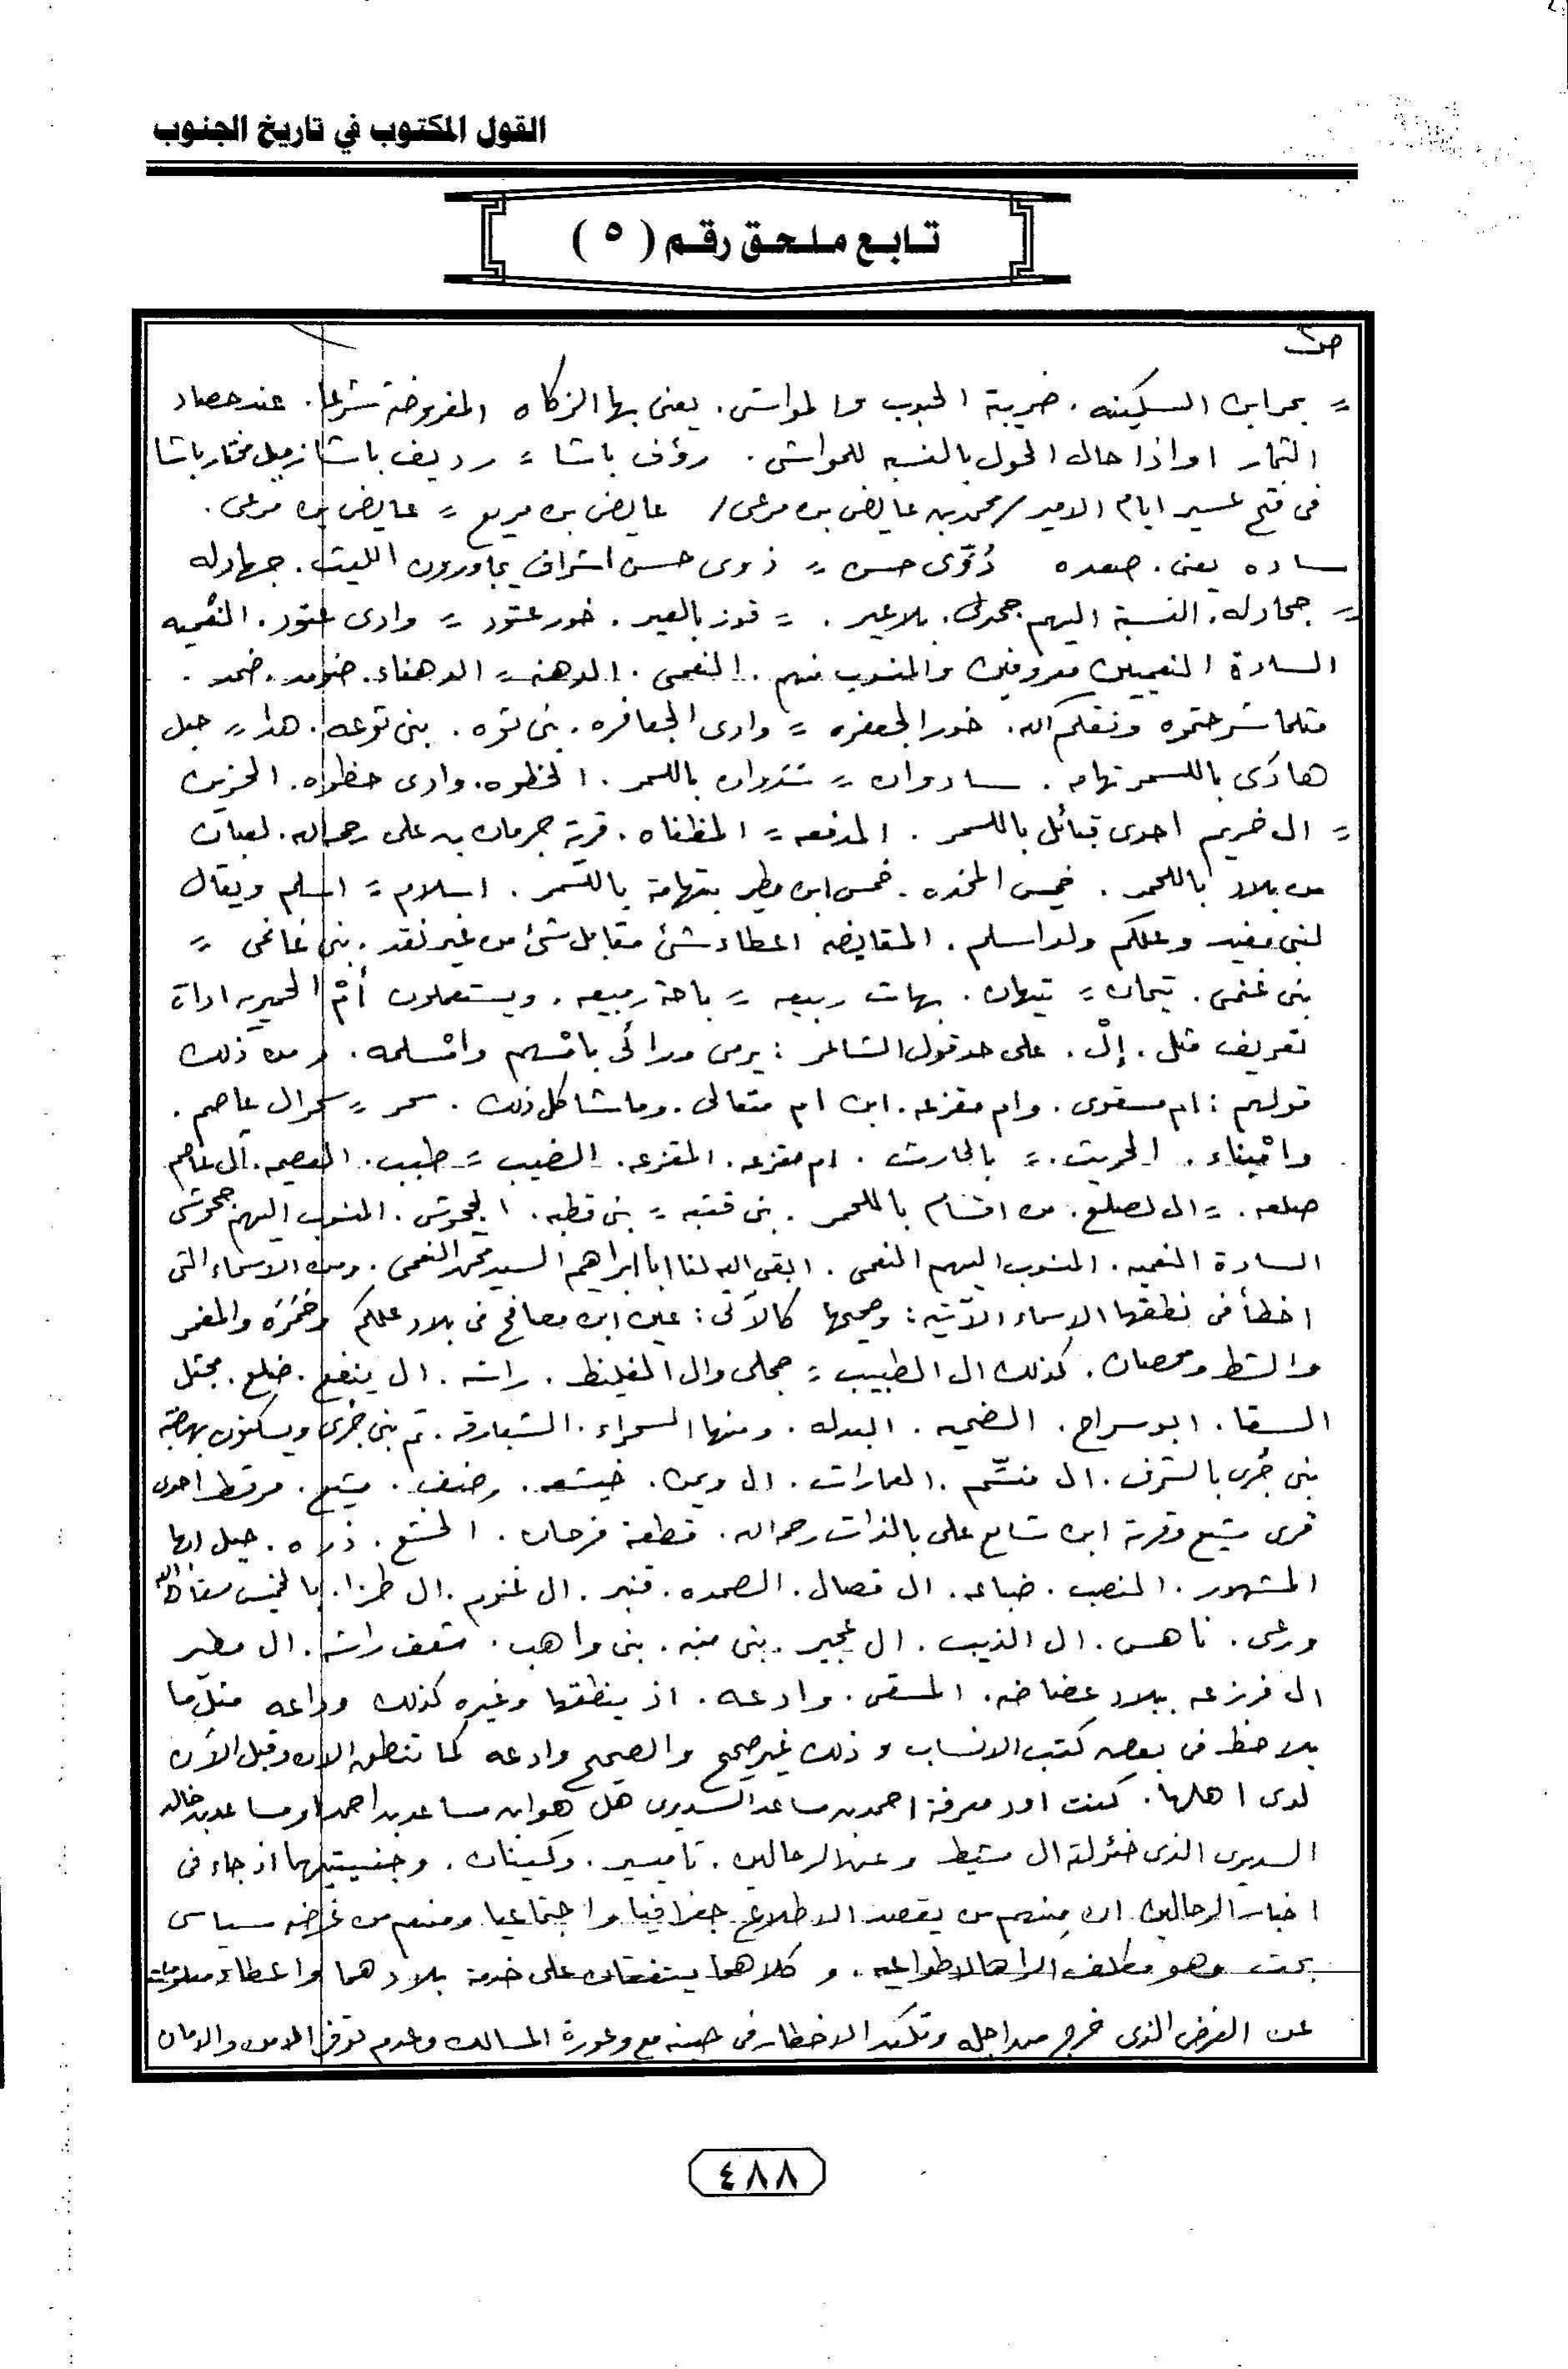 القول المكتوب في تاريخ الجنوب
تابع ملحق رقم ( ٥ )
= بحر ابن السكينه . ضريبة الحبوب والمواشى . يعنى بها الزكاه المفروضة شرعا . عند حصاد
الثمار او اذا حال الحول بالنسبه للمواشى . رؤف باشا = رديف باشا زميل مختار باشا
فى فتح عسير ايام الامير / محمد بن عايض بن مرعى / عايض بن مريع = عايض بن مرعى .
ساده يعنى . صعده ذُوّى حسن = ذوى حسن اشراف يجاورون الليث . جهادله
= جحادله . النسبة اليهم جحدلى . بلاعير . = قوز بالعير . خور عتود = وادى عتود . النعميه
السادة النعميين معروفين والمنسوب منهم . النعمى . الدهنه = الدهناء . ضمد .
مثلما شرحتموه ونفعكم الله . خور الجعفره = وادى الجعافره . بنى ثوه . بنى ثوعه . هدا = جبل
هادى باللسمر تهامه . سادوان = سدوان باللسمر . الخظوه . وادى خظوه . الخزين
= ال خريم احدى قبائل باللسمر . المدفعه = المظفاه . قرية جرمان بن على رحمه الله . لعبان
من بلاد باللحمر . خميس المخده . خمس ابن مطير بتهامة باللسمر . اسلام = اسلم ويقال
لبنى مغيد وعلكم ولد اسلم . المقايضه اعطاء شئ مقابل شئ من غير نقد . بنى غانمى =
بنى غنمى . تيحان = تيهان . بهات ربيعه = باحة ربيعه . ويستعملون أمْ الحميريه اداة
تعريف مثل . إلْ . على حد قول الشاعر : يرمى ورائى بامْسهم وامْسلمه . ومن ذلك
قولهم : ام مسقوى . وام مقزعه . ابن ام متعالى . وما شاكل ذلك . سحر = سحر ال عاصم .
وامْيناء . الحريث . = بالحارث . ام مقزعه . المقزعه . الضبيب = طبب . العصمه . آل عاصم
صلعه . = ال لصلع . من اقسام باللحمر . بنى قتبه = بنى قطبه . الجحوش . المنسوب اليهم جحوشى
السادة النعميه . المنسوب اليهم النعمى . ابقى الله لنا ابا ابراهيم السيد محمد النعمى . ومن الاسماء التى
اخطأ فى نطقها الاسماء الآتيه : وصحيحها كالآتى : عين ابن مصافح فى بلاد علكم والمغمر
والشط ومحصان . كذلك ال الطبيب = مجلى وال الغليظ . راشه . ال ينفع . ضلع . محتل
السقا . ابو سراح . الضحيه . البدله . ومنها السمراء . الشبارقه . ثم بنى جُرى ويسكنون بهضبة
بنى جُرى بالشرف . ال منسّم . العمارات . ال ويمن . رضف . يشيع . مرقط احدى
قرى يشيع وقرية ابن شايع على بالذات رحمه الله . قطعة فرحان . الخشع . ذره . جبل ابها
المشهور . المنصب . ضباعه . ال قصال . الصمده . قنبر . ال غنوم . ال طرزا . بالخميس سقاها الله
ورعى . ناهس . ال الذيب . ال عجير . بنى منبه . بنى واهب . شعف راشه . ال مطير
ال فرزعه ببلاد عضاضه . المسقى . وادعه . اذ ينطقها وغيره كذلك وداعه مثل ما
يلاحظ فى بعض كتب الانساب وذلك غير صحيح والصحيح وادعه كما تنطق الان وقبل الآن
لدى اهلها . كنت اود معرفة احمد بن مساعد السديرى هل هو ابن مساعد بن احمد او مساعد بن خالد
السديرى الذى خئولة ال مشيط وعن الرحالين . تاميسير . وكينان . وجنسيتيهما اذ جاء فى
اخبار الرحالين ان منهم من يقصد الاطلاع جغرافيا واجتماعيا ومنهم من غرضه سياسى
بحت وهو مكلف . وكلاهما يتفقان على خدمة بلادهما واعطاء معلومات
عن الغرض الذى خرج من اجله وتكبد الاخطار فى حينه مع وعورة المسالك وعدم توفر الامن والامان
٤٨٨